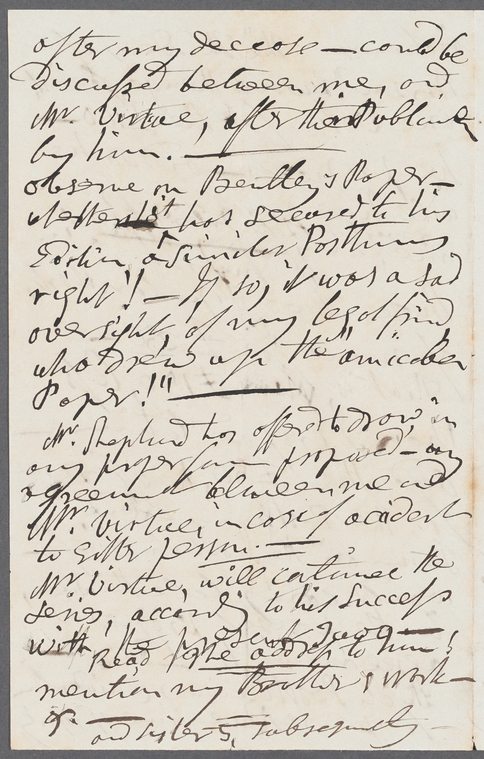 after my decease — could be
discussed between me, and
Mr. Virtue, after their Publication
by him. —
observe on Bentley's Paper —
whether he has secured to his
Edition, a similar Posthumous
right! — If so, it was a sad
oversight, of my legal friend,
who drew up the "amicable
Paper!" —
Mr. Shepherd has offered to draw in
any proper form proposed — any
agreement between me and
Mr. Virtue, in case of accident
to either person. —
Mr Virtue, will continue the
series, according to his success
with, the present
Read the address to him!
mention my Brother's work —
&c. —
and sister's, subsequently